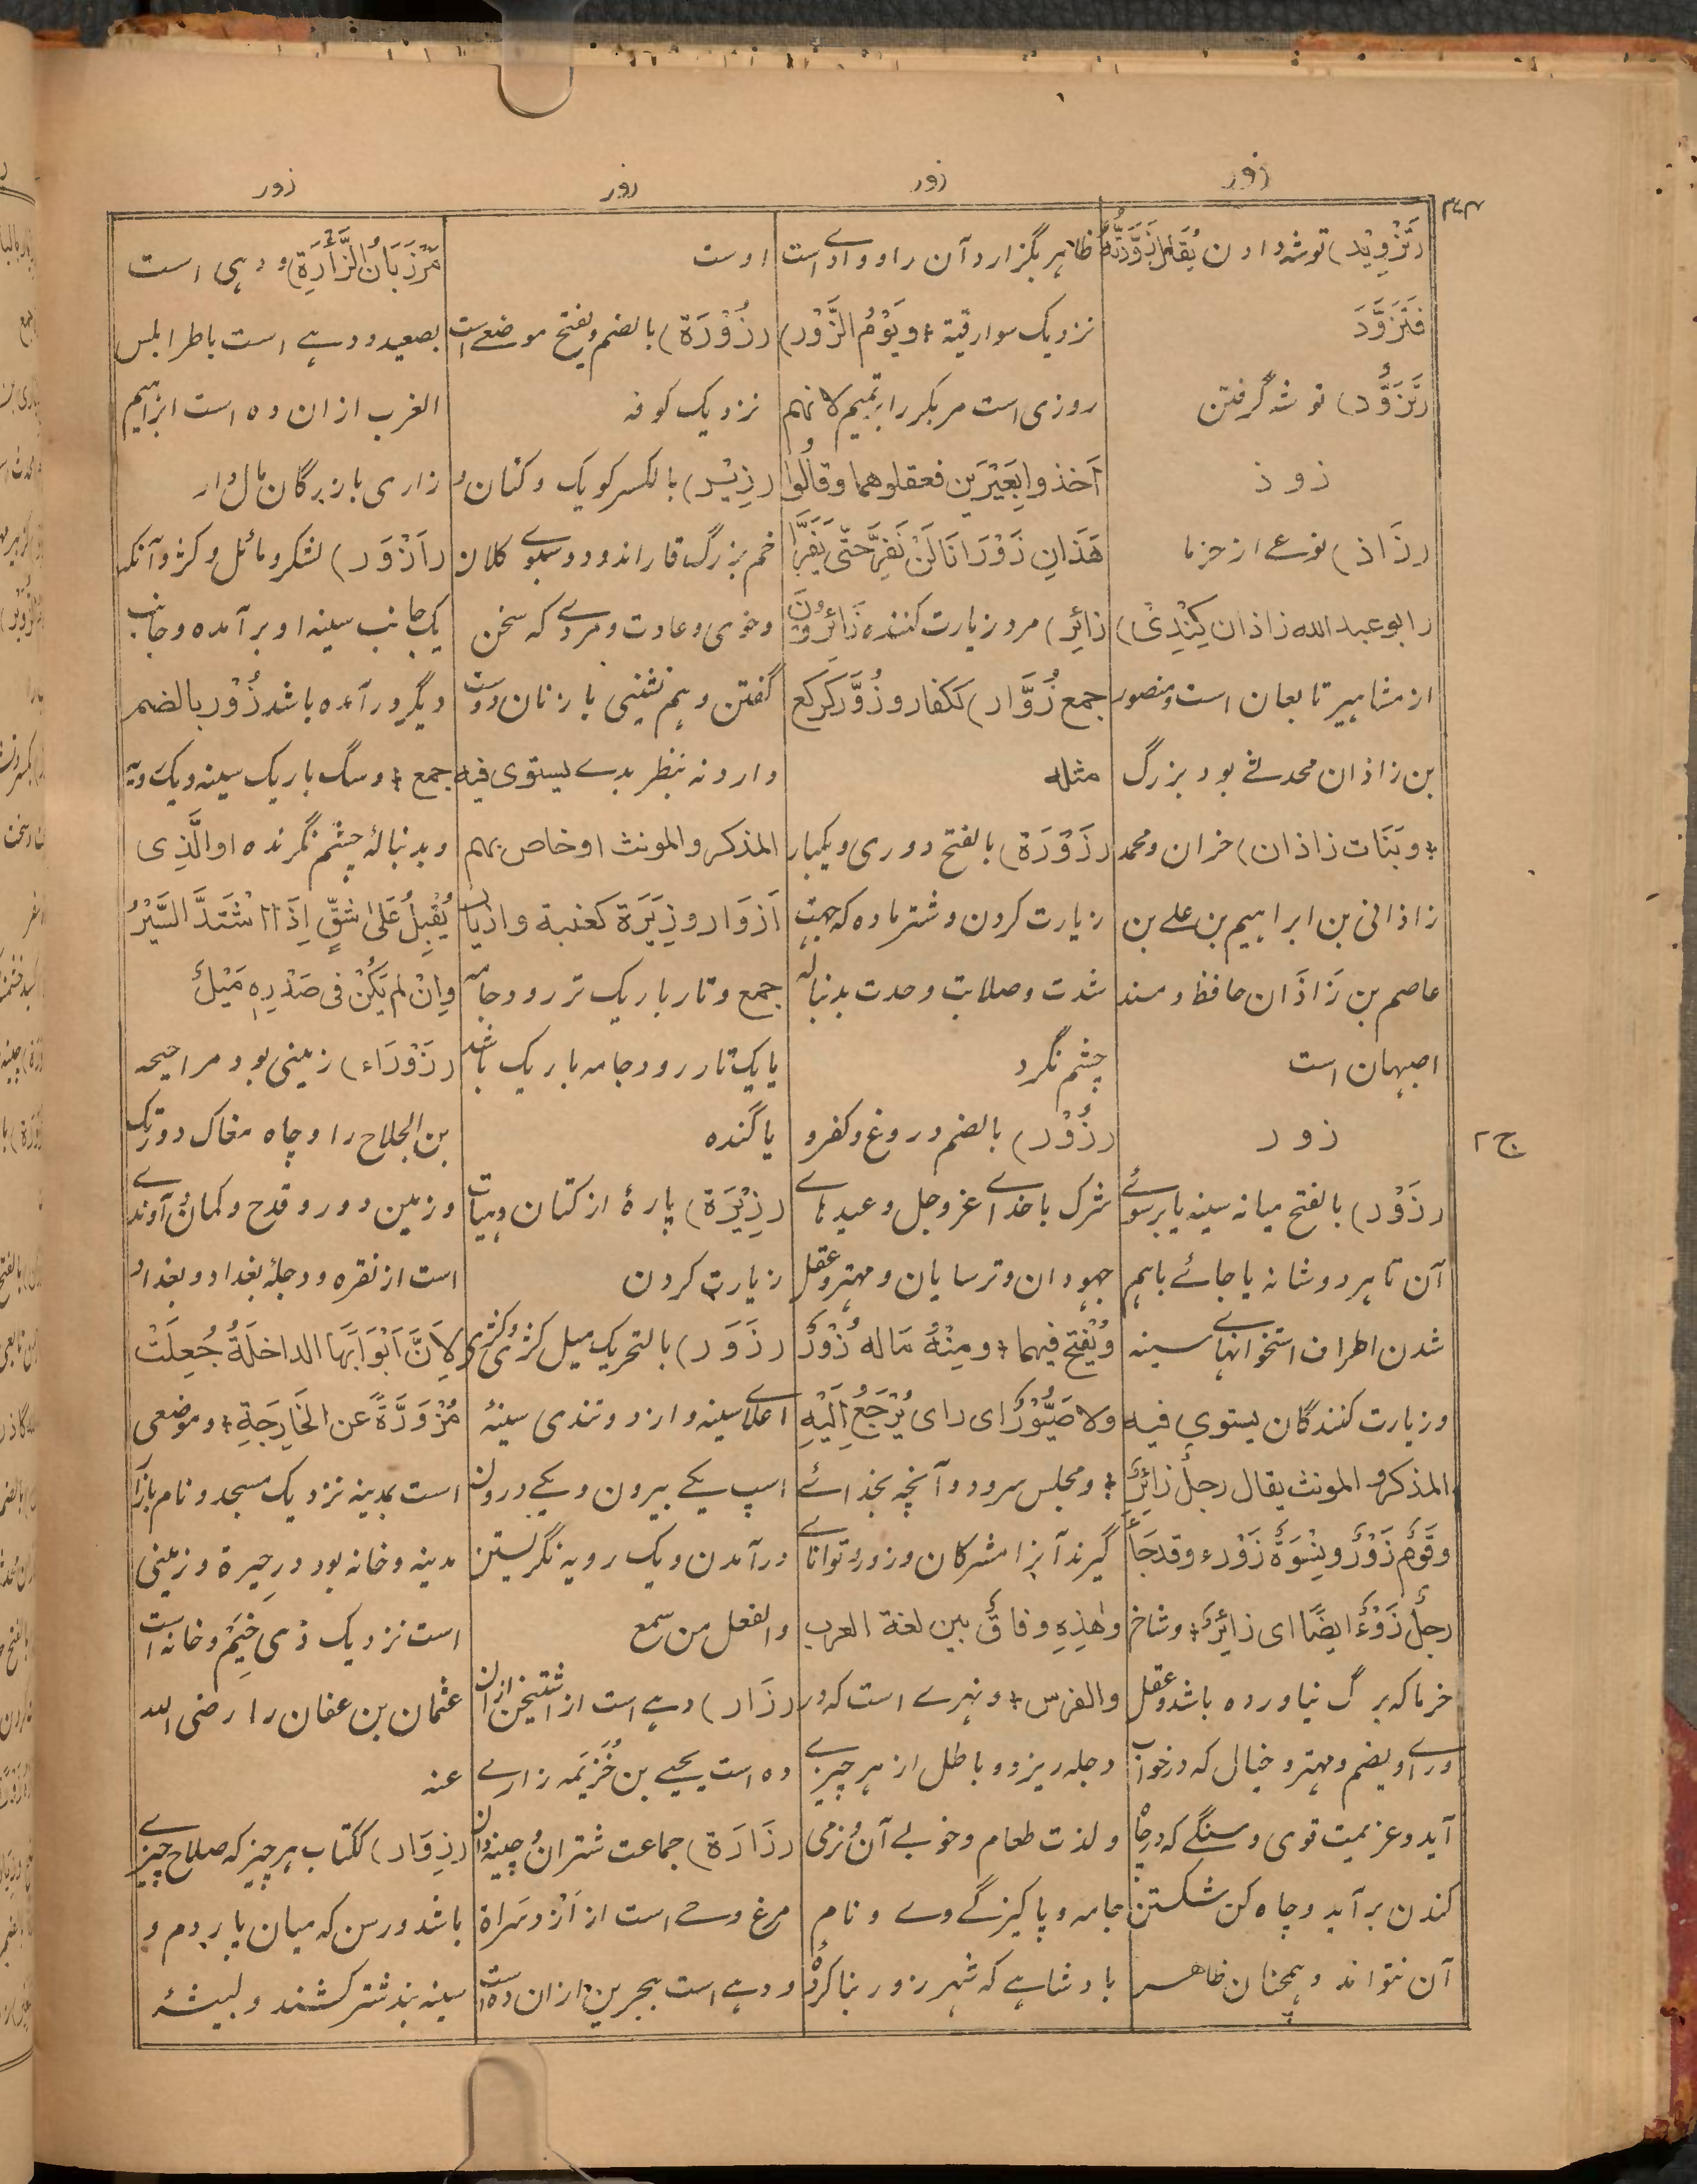 زور
زور
زور
زور
(تَزْوِیْد) توشه دادن یُقَالُ زَوَّدْتُّهٗ
فَتَزَوَّدَ
(تَزَوُّد) توشه گرفتن
زوذ
(زَاذ) نوعے از خرما
(ابو عبد الله زاذان کِنْدِیّ)
از مشاہیر تابعان است و منصور
بن زاذان محدثے بود بزرگ
و بَنَات زاذان) خران و محمد
زاذانی بن ابراہیم بن علے بن
عاصم بن زَاذَان حافظ و مسند
اصبہان است
زور
(زَوْر) بالفتح میانه سینه یا برسوئے
آن تا ہر دو شانه یا جائے باہم
شدن اطراف استخوانہاے سینه
و زیارت کنندگان یستوی فیه
المذکر و المونث یقال رجلٌ زائِرٌ
وقَومٌ زَوْرٌ ونِسْوَةٌ زَوْرٌ وقد جَاءَ
رجلٌ زَوْرٌ ایضًا ای زائِرٌ و شاخ
خرما که برگ نیاورده باشد و عقل
وراے و یضم و مہتر و خیال که در خواب
آید و عزیمت قوی و سنگے که در چاه
کندن بر آید و چاه کن شکستن
آن نتواند و ہمچنان ظاہر
ظاہر بگزارد آن را و وادے است
نزدیک سوارقیة و یَوْمُ الزَّوْر)
روزی است مر بکر را بر تمیم لانهم
اَخذوا بَعِیْرَین فعقلوهما وقالُوا
هَذَانِ زَوْرَانَا لَنْ نَفِرَّ حتّٰی یَفِرَّا
(زائِر) مرد زیارت کننده زَائِرُوْنَ
جمع زُوَّار) ککفار و زُوَّر کرکع
مثله
(زَوْرَة) بالفتح دوری و یکبار
زیارت کردن و شتر ماده که جہت
شدت و صلابت و حدت بدنباله
چشم نگرد
(زُوْر) بالضم دروغ و کفر و
شرک باخداے عز و جل و عیدہاے
جہودان و ترسایان و مہتر و عقل
ویُفْتح فیهما و مِنْهُ مَاله زُوْرٌ
ولا صَیُّوْرٌ ای رای یُرْجَعُ اِلَیْهِ
و مجلس سرود و آنچه بخدائے
گیرند آنرا مشرکان و زور و توانائے
وهٰذِهٖ وفاقٌ بین لغة العرب
والفرس و نہرے است که در
دجله ریزد و باطل از ہر چیزے
و لذت طعام و خوبے آن و نرمی
جامه و پاکیزگے وے و نام
بادشاہے که شہر زور بنا کرده
اوست
(زُوْرَة) بالضم و یفتح موضعے است
نزدیک کوفه
(زِیْر) بالکسر کویک و کتان و
خم بزرگ قار اندود و سبوے کلان
و خوی و عادت و مردے که سخن
گفتن و ہم نشینی با زنان دوست
دارد نه بنظر بدے یستوی فیه
المذکر والمونث او خاص بهم
اَزوَار و زِیَرَة کعنبة و ازیار
جمع و تار باریک تر رود و جامه
یا یک تار رود جامه باریک باشد
یا گنده
(زِیْرَة) پارهٔ از کتان و ہیات
زیارت کردن
(زَوَر) بالتحریک میل کژی و کثری
اعلاے سینه و از دو تندی سینهٔ
اسپ یکے بیرون و یکے درون
در آمدن و یک رویه نگریستن
والفعل من سمع
(زَار) دہے است از اشتیخن ازان
ده است یحیے بن خُزَیمَه زاری
(زَارَة) جماعت شتران و چینه دان
مرغ و حے است از اَزْد سَراة
و دہے است ببحرین ازان ده است
مَرْزَبَانُ الزَّأْرَةِ) و دہی است
بصعید و دہے است باطرابلس
الغرب ازان ده است ابراہیم
زاری بازرگان مال دار
(اَزْوَر) لشکر و مائل و کژ و آنکه
یک جانب سینه او بر آمده و جانب
دیگر در آمده باشد زُوْر بالضم
جمع و سگ باریک سینه و یک رویه
و بدنباله چشم نگرنده او الَّذِی
یُقْبِلُ عَلیٰ شِقٍّ اِذَا اشْتَدَّ السَّیْرُ
واِنْ لم یَکُنْ فی صَدْرِهٖ مَیْلٌ
(زَوْرَاء) زمینی بود مر احیحه
بن الجلاح را و چاه مغاک دور تک
و زمین دور و قدح و کمان و آوندے
است از نقره و دجلهٔ بغداد و بغداد
لاَنَّ اَبْوَابَهَا الداخلةُ جُعِلَتْ
مُزْوَرَّةً عن الخَارِجَةِ و موضعی
است بمدینه نزدیک مسجد و نام بازار
مدینه و خانه بود در حیرة و زمینی
است نزدیک ذی خِیَمْ و خانه است
عثمان بن عفان را رضی الله
عنه
(زِوَار) ککتاب ہر چیز که صلاح چیزے
باشد و رسن که میان پار دم و
سینه بند شتر کشند و لبیشهٔ
ج ۲